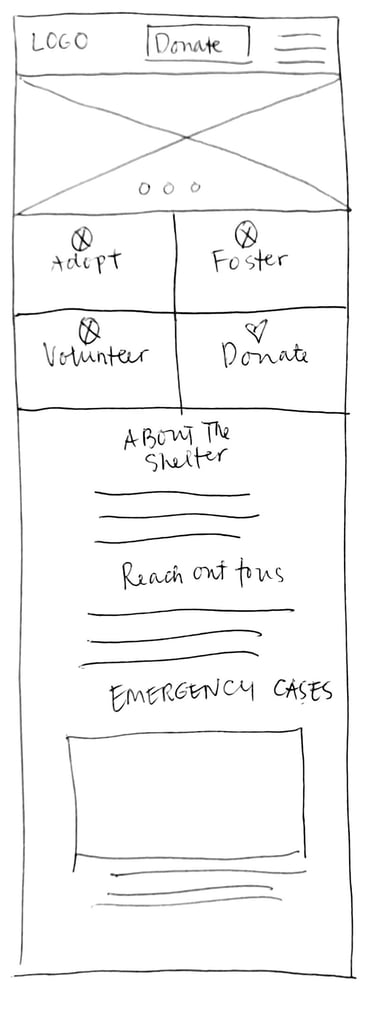 LOGO
Donate
Adopt
Foster
Volunteer
Donate
ABOUT The
Shelter
Reach out to us
EMERGENCY CASES